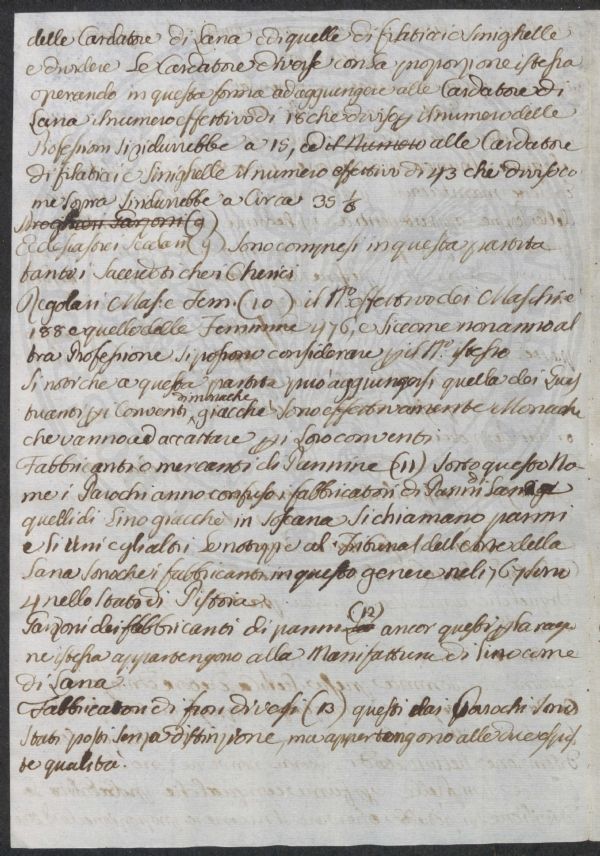 delle Cardatore di Lana e di quelle di filaticci e Sinighelle
e dividere Le Cardatore diverse con la proporzione istessa
operando in questa forma ad aggiungere alle Cardatore di
Lana il numero effettivo di 18 che diviso p il numero delle
Professioni si ridurrebbe a 15, ed il Numero alle Cardatore
di filaticci e Sinighelle il numero effettivo di 43 che diviso co
me sopra si ridurrebbe a Circa 35 1/8
Garzoni (9)
Ecclesiastici Secolari (9) Sono compresi in questa partita
tanto i Sacerdoti che i Cherici
Regolari Mas: e Fem: (10) il N.o effettivo dei Maschi è
188 e quello delle Femmine 476, e siccome non anno al
tra Professione si possono considerare p il N.o istesso
Si noti che a questa partita può aggiungersi quella dei Ques
tuanti p i Conventi di monache giacchè sono effettivamente Monache
che vanno ad accattare p i Loro conventi
Fabbricanti o mercanti di Pannine (11) Sotto questo No
me i Parochi anno confuso i fabbricatori di Panni di Lana e
quelli di Lino giacchè in Toscana si chiamano panni
e gli uni e gli altri. Le notizie al Tribunal dell'arte della
Lana sono che i fabbricanti in questo genere nel 1767 sono
4 nello Stato di Pistoia
Garzoni dei fabbricanti di panni (12) ancor questi p la ragio
ne istessa appartengono alla Manifattura di Lino come
di Lana
Fabbricatori di fiori diversi (13) questi dai Parochi sono
stati posti senza distinzione, ma appartengono alle due espos
te qualità.